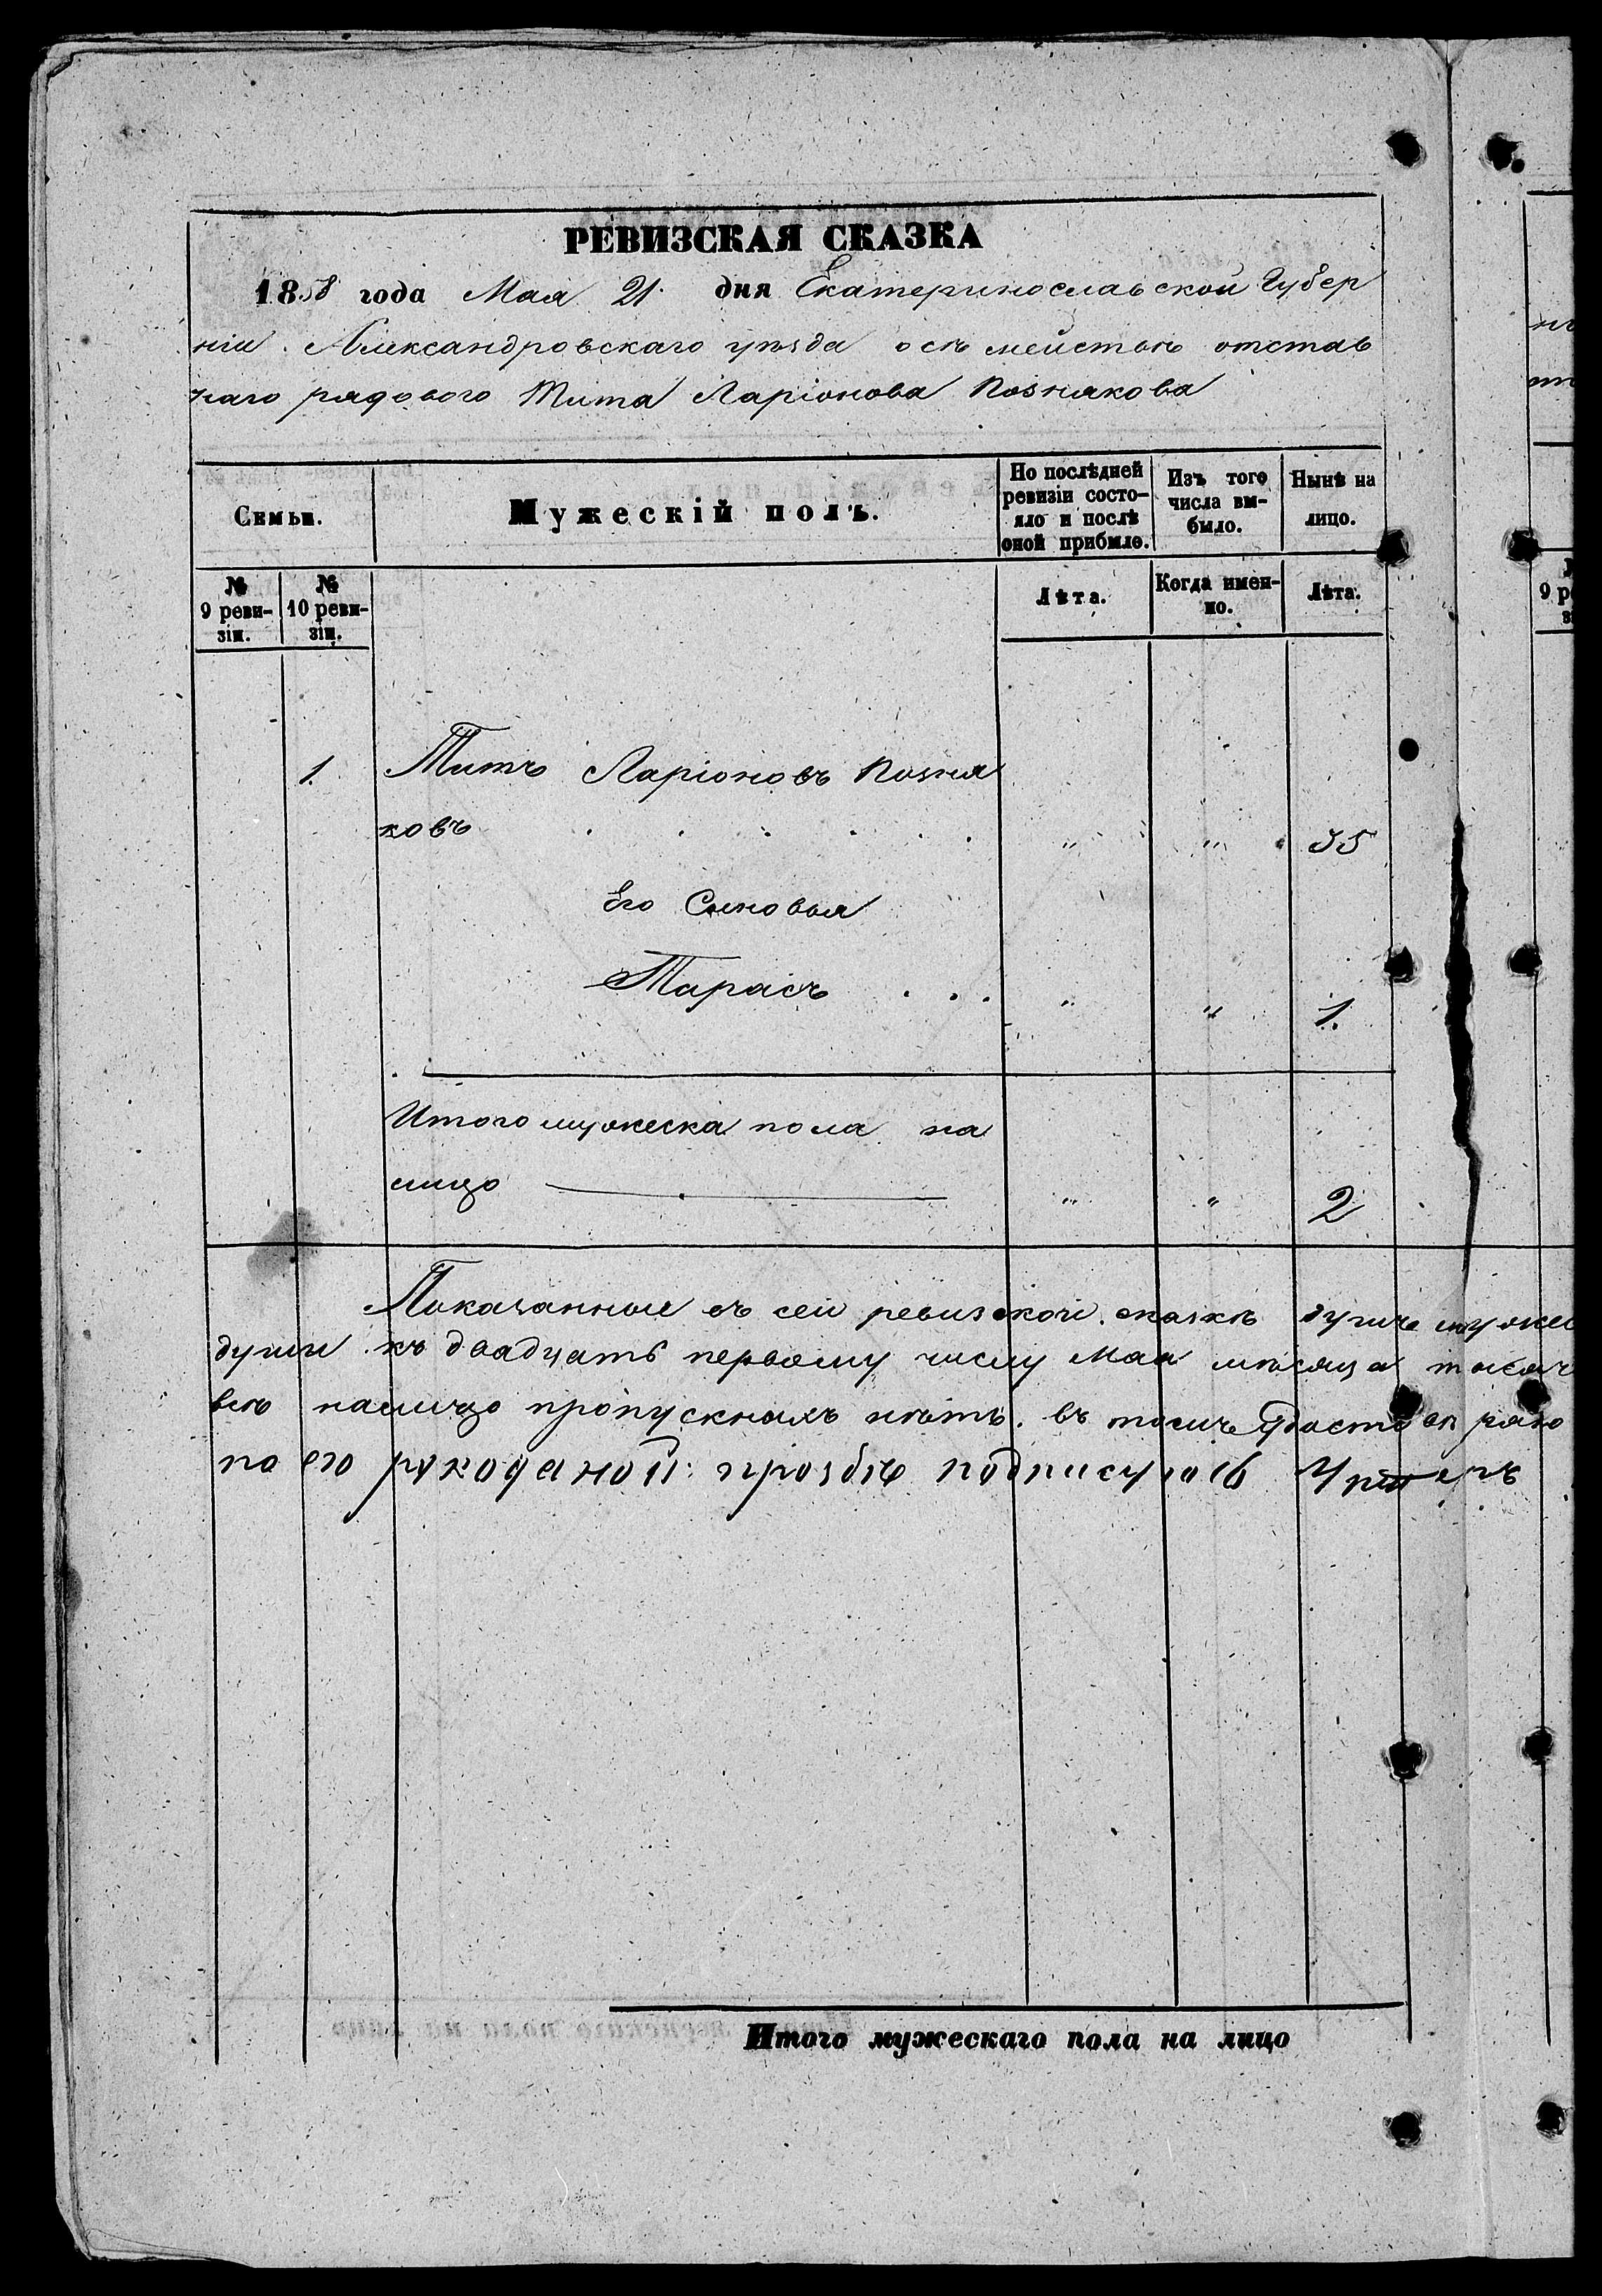 РЕВИЗСКАЯ СКАЗКА
1858 года Мая 21. дня Екатеринославской Губер
ніи. Александровскаго уѣзда о семействѣ отстав
наго рядового Тита Ларіонова Познякова
Семьи.
Мужескій полъ.
По послѣдней ревизіи состо-
яло и послѣ
оной прибыло.
Изъ того
числа вы-
было.
Нынѣ на
лицо.
№
9 реви-
зіи.
№
10 реви-
зіи.
Лѣта.
Когда имен-
но.
Лѣта.
1. Титъ Ларіоновъ Позня
ковъ . . . . . . " " 35
Его Сыновья
Тарасъ . . . " " 1.
Итого мужеска пола на
лицо " " 2
Показанныя въ сей ревизской сказкѣ
души къ двадцать первому числу Мая мѣсяца
налицо пропускныхъ нѣтъ. въ томъ
по его рукоданой прозбѣ подписуюсь
Итого мужескаго пола на лицо
9